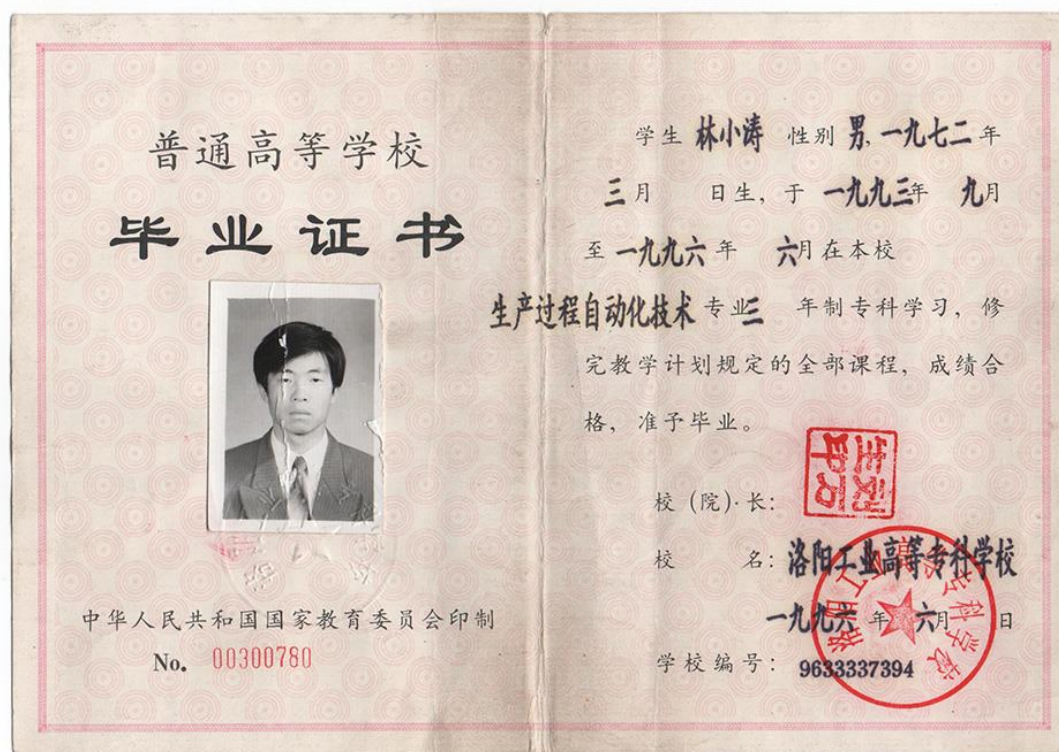 普通高等学校
毕业证书
中华人民共和国国家教育委员会印制
No. 00300780
学生 林小涛 性别 男, 一九七二年
三月 日生, 于 一九九三年 九月
至 一九九六 年 六月在本校
生产过程自动化技术 专业三 年制专科学习, 修
完教学计划规定的全部课程, 成绩合
格, 准予毕业。
校(院)·长:
校 名: 洛阳工业高等专科学校
一九九六 年 六月 日
学校编号: 9633337394
洛阳工业高等专科学校